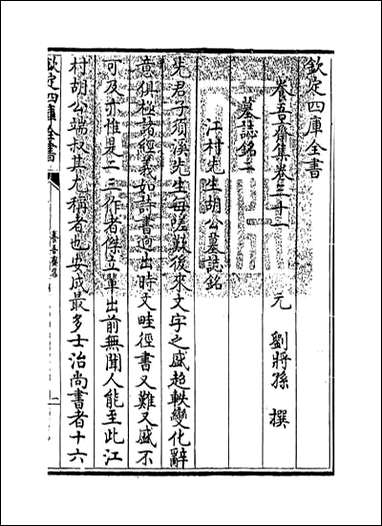 欽定四庫全書
養吾齋集卷三十二
元 劉將孫 撰
墓誌銘二
江村先生胡公墓誌銘
先君子須溪先生每嗟歎後來文字之盛超軼變化辭
意俱極諸經義如詩書迥出時文畦徑書又難又盛不
可及亦惟是二三作者傑立軍出前無聞人能至此江
村胡公端叔其尤稱者也安成最多士治尚書者十六
欽定四庫全書